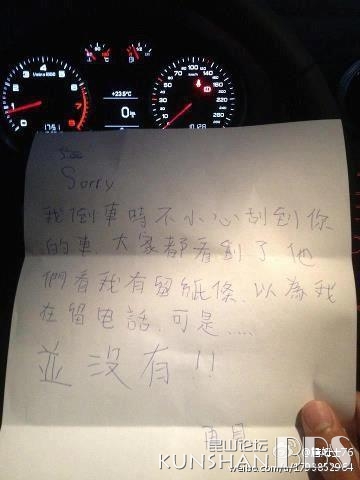 +23.5°C
Sorry
我倒車時不小心刮到你
的車,大家都看到了他
們看我有留紙條,以為我
在留电話,可是.....
並没有!!
再見
昆山论坛
KUNSHAN BBS
weibo.com/u/1795852984